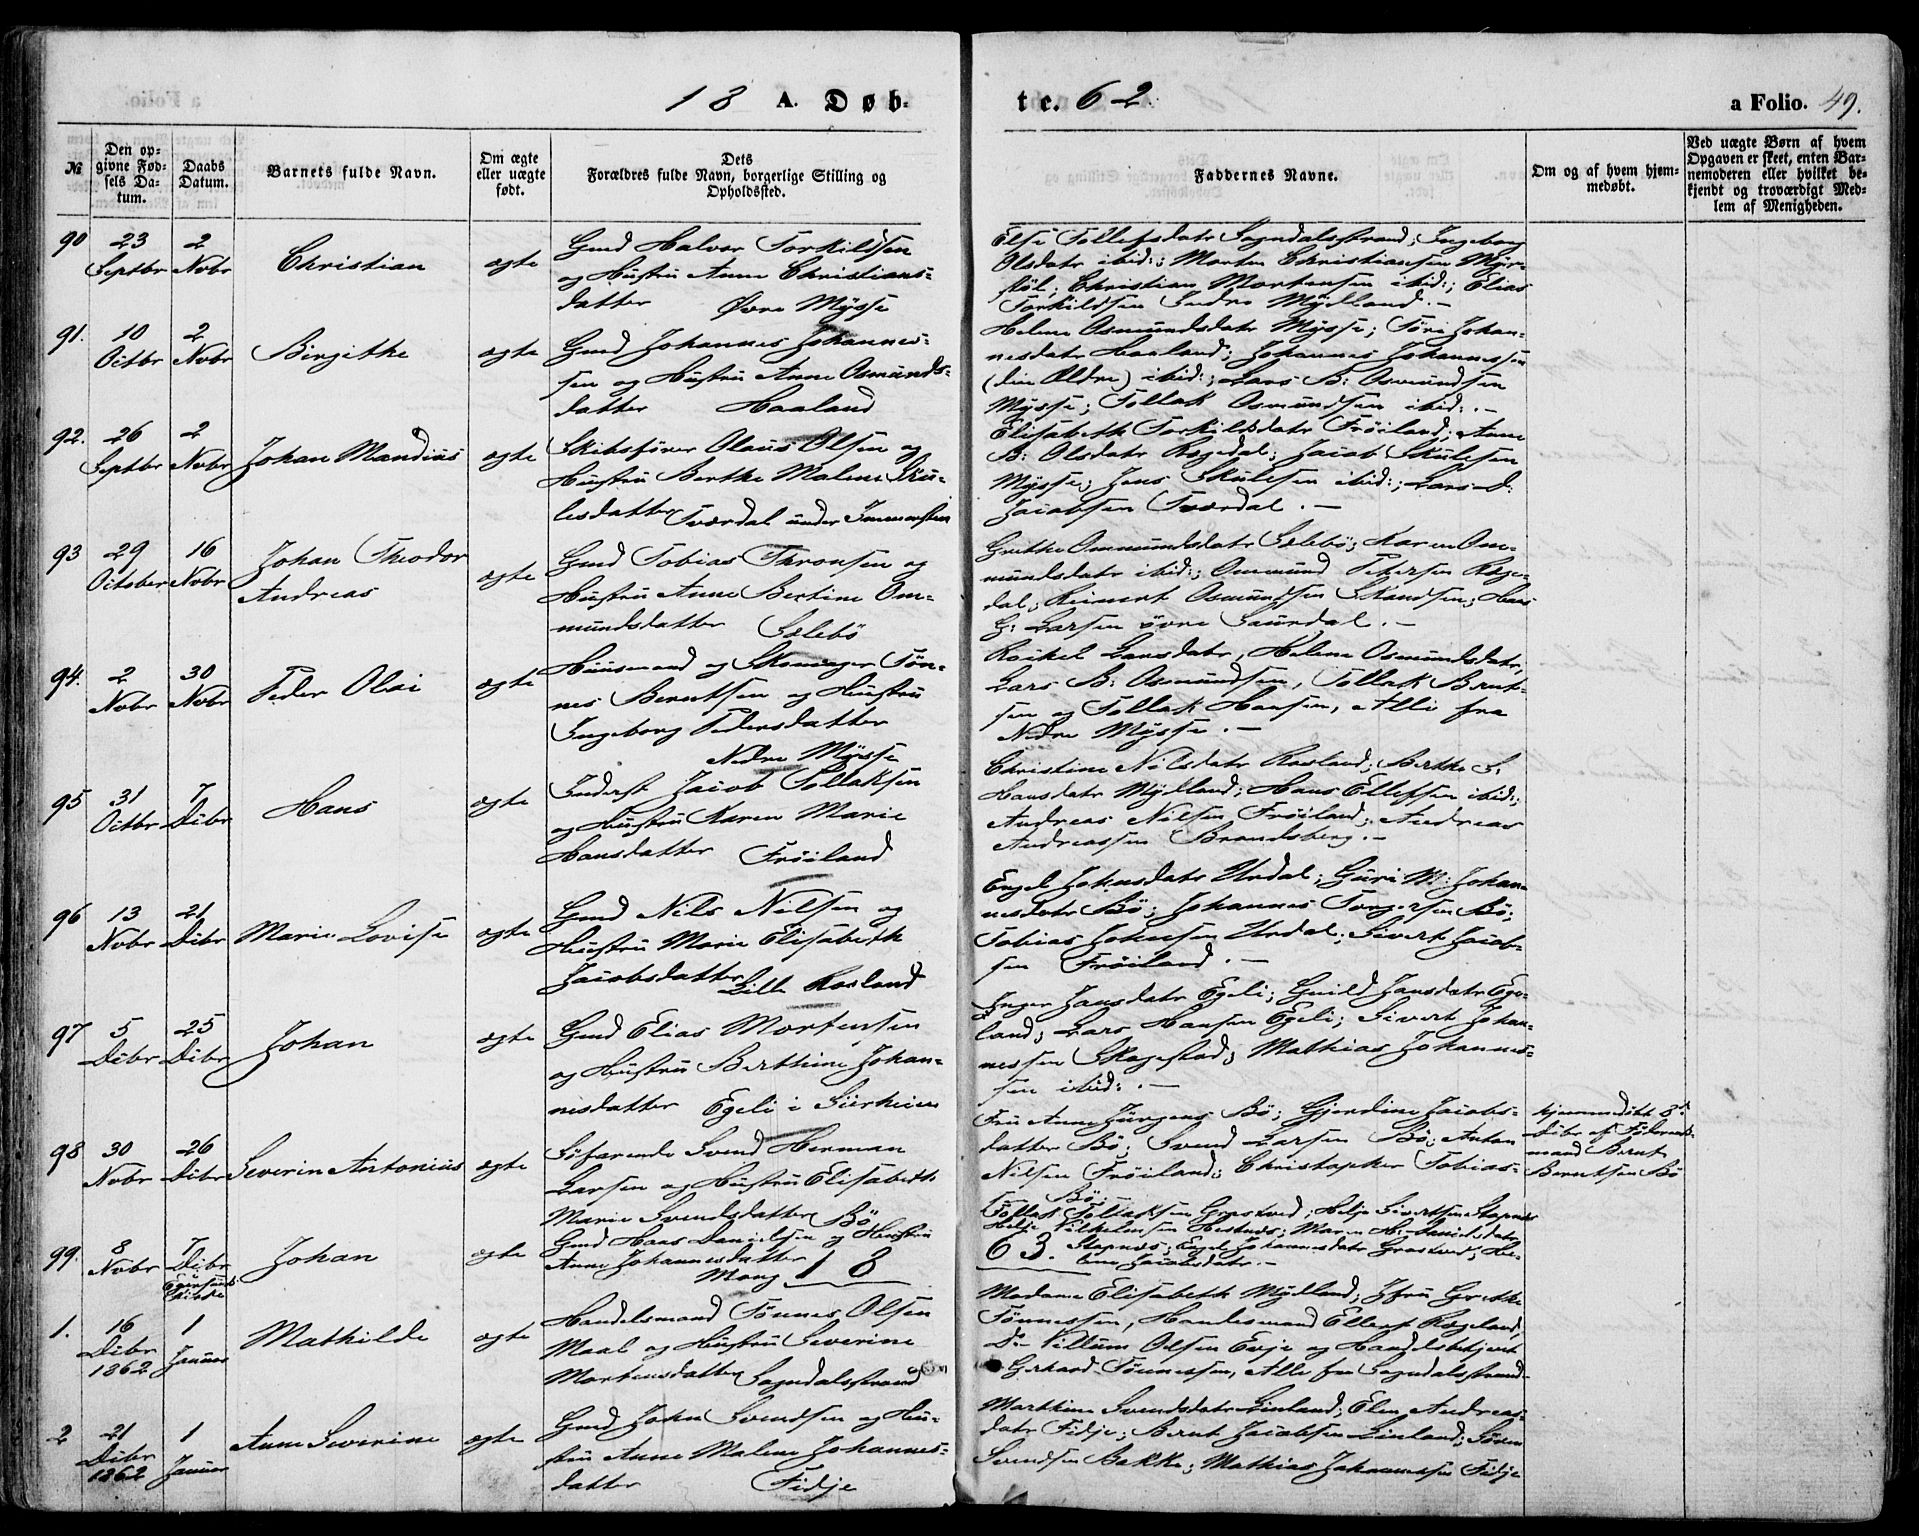 18 A. Døb-
te. 62.
a Folio. 49.
№
Den op-
givne Fød-
sels Da-
tum.
Daabs
Datum.
Barnets fulde Navn.
Om ægte
eller uægte
født.
Dets
Forældres fulde Navn, borgerlige Stilling og
Opholdssted.
Faddernes Navne.
Om og af hvem hjem-
medøbt.
Ved uægte Børn af hvem
Opgaven er skeet, enten Bar-
nemoderen eller hvilket be-
kjendt og troværdigt Med-
lem af Menigheden.
90
23
Septbr
2
Novbr
Christian
ægte
Gmd Halvor Torkildsen
og Hustru Anne Christians-
datter Øvre Mysse
Else Tollefsdatr Sogndalsstrand; Ingeborg
Olsdatr ibid:; Morten Christiansen Myr-
stöl; Christian Mortensen ibid:; Elias
Torkildsen Indre Mydland. -
91.
10
Octbr
2
Novbr
Birgithe
ægte
Gmd Johannes Johannes-
sen og Hustru Anne Osmunds-
datter Haaland
Helene Osmundsdatr Mysse; Töri Johan-
nesdatr Haaland; Johannes Johannessen
(den Ældre) ibid:; Lars B: Osmundsen
Mysse; Tollak Osmundsen ibid:. -
92.
26
Septbr
2
Novbr
Johan Mandius
ægte
Skibsfører Olaus Olsen og
Hustru Berthe Malene Sku-
lesdatter Tværdal under Immerstein
Elisabeth Torkildsdatr Fröiland; Anne
B: Olsdatr Rægedal; Jacob Skulesen
Mysse; Jens Skulesen ibid:; Lars D:
Jacobsen Tværdal. -
93
29
October
16
Novbr
Johan Theodor
Andreas
ægte
Gmd Tobias Thronsen og
Hustru Anne Bertine Om-
mundsdatter Sælebö
Grethe Ommundsdatr Sælebö; Karen Om-
mundsdatr ibid:; Ommund Petersen Ræge-
dal; Reinert Osmundsen Skandsen; Hans
G: Larsen övre Saurdal. -
94.
2
Novbr
30
Novbr
Peder Olai
ægte
Huusmand og Skomager Tön-
nes Berntsen og Hustru
Ingeborg Pedersdatter
Nedre Mysse
Rachel Larsdatr, Helene Osmundsdatr,
Lars B: Osmundsen, Tollak Bernt-
sen og Tollak Hansen, Alle fra
Nedre Mysse. -
95
31
Octbr
7
Decbr
Hans
ægte
Inderst Jacob Tollaksen
og Hustru Karen Marie
Hansdatter Fröiland
Christine Nilsdatr Rosland; Berthe S:
Hansdatr Mydland; Hans Ellefsen ibid:;
Andreas Nilsen Fröiland; Andreas
Andreassen Brandsberg. -
96
13
Novbr
21
Decbr
Marie Lovise
ægte
Gmd Nils Nilsen og
Hustru Marie Elisabeth
Jacobsdatter Lille Rosland
Engel Johnsdatr Urdal; Guri M: Johan-
nesdatr Bö; Johannes Torgersen Bö;
Tobias Johnsen Urdal; Sivert Jacob-
sen Fröiland. -
97
5
Decbr
25
Decbr
Johan
ægte
Gmd Elias Mortensen
og Hustru Berthine Johan-
nesdatter Egeli i Siirheien
Inger Jansdatr Egeli; Gunild Jansdatr Ege-
land; Lars Hansen Egeli; Sivert Johan-
nessen Skogestad; Mathias Johannes-
sen ibid:. -
98
30
Novbr
26
Decbr
Severin Antonius
ægte
Söfarende Svend Herman
Larsen og Hustru Elisabeth
Marie Svendsdatter Bö
Fru Anne Jürgens Bö; Gjerdine Jacobs-
datter Bö; Svend Larsen Bö; Anton
Nilsen Fröiland; Christopher Tobias-
Bö. -
Hjemmedöbt 8de
Decbr af
mand Bernt
Berntsen Bö
99.
8
Novbr
7
Decbr
Johan
ægte
Gmd Hans Danielsen og Hustru
Anne Johannesdatter
Mong
Tollak Tollaksen Græsved; Helje Sivertsen Stapnes
Helje Vilhelmsen Hestnæs; Maren H: Danielsdatr
Stapnæs; Engel Johannesdatr Græsved; He-
lene Jacobsdatr. -
18
63.
1.
16
Decbr
1862
1
Januar
Mathilde
ægte
Handelsmand Tönnes Olsen
Maal og Hustru Severine
Mortensdatter Sogndalsstrand
Madame Elisabeth Mydland; Jfru Grethe
Tönnessen, Handelsmand Ellert Rægeland,
Do Villum Olsen Evje og Handelsbetjent
Gerhard Tönnessen, Alle fra Sogndalsstrand
2
21
Decbr
1862
1
Januar
Anne Severine
ægte
Gmd John Svendsen og Hu-
stru Anne Malene Johannes-
datter Fidje
Marthine Svendsdatr Linland; Elen Andreas-
datr Fidje; Bernt Jacobsen Linland; Sören
Svendsen Bakke; Mathias Johannessen Fidje